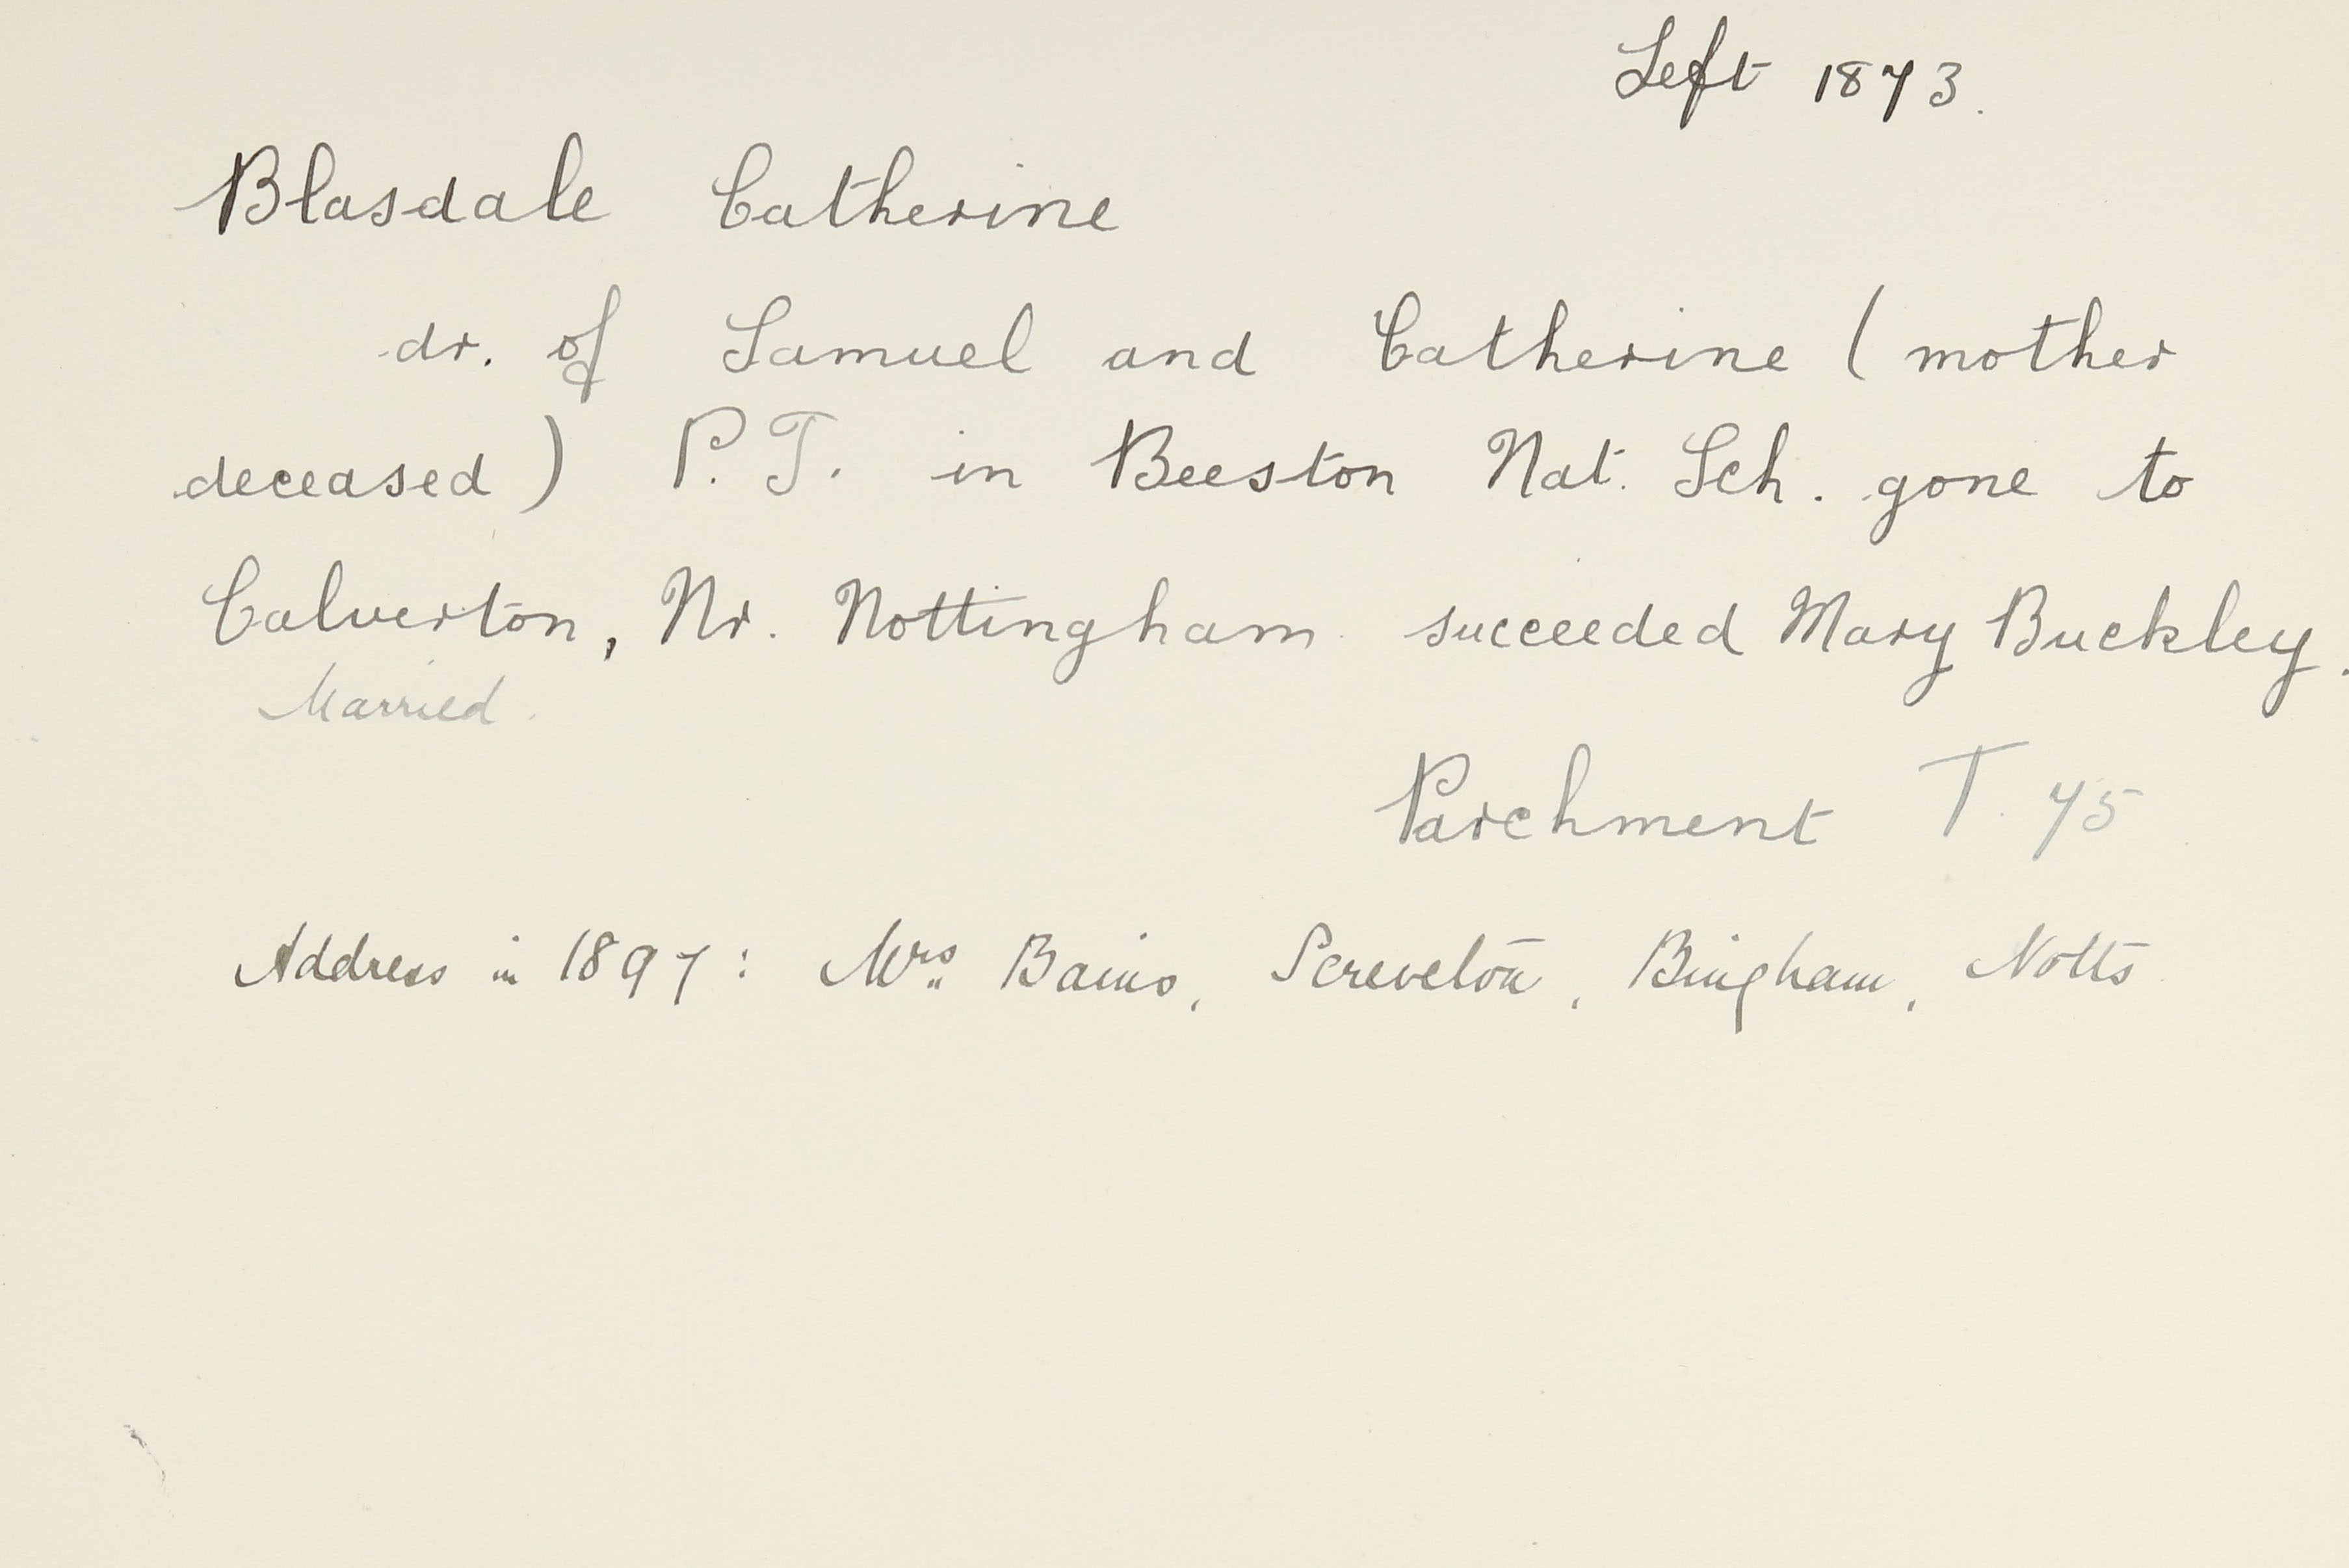 Left 1873.
Blasdale Catherine
dr. of Samuel and Catherine (mother
deceased) P.T. in Beeston Nat. Sch. gone to
Calverton, Nr. Nottingham succeeded Mary Buckley.
Married.
Parchment T. 75
Address in 1897: Mrs Bains, Screveton, Bingham, Notts